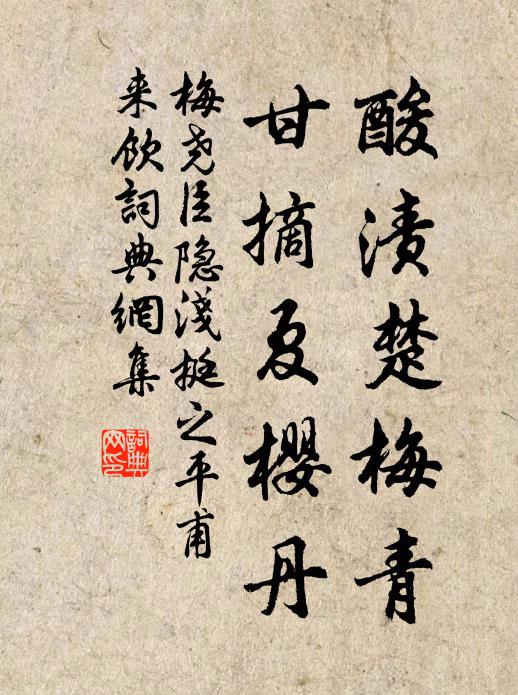 酸渍楚梅青
甘摘夏樱丹
梅尧臣隐浅挺之平甫
来饮词典網集
詞典網印